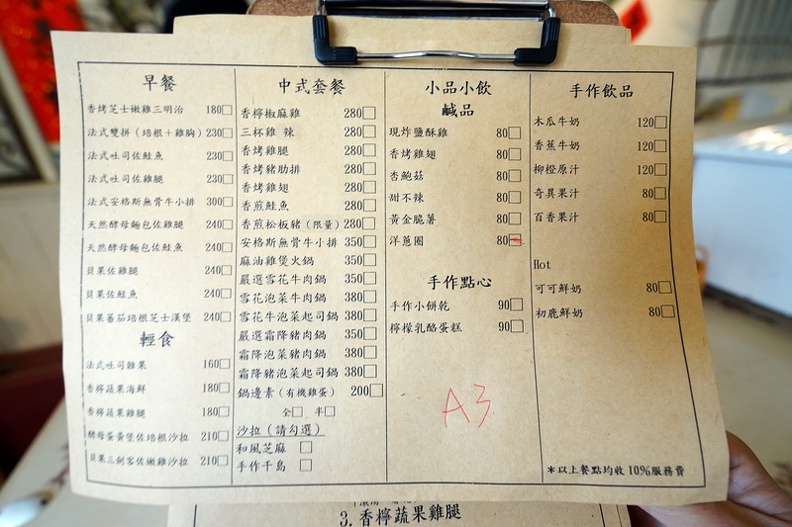 早餐
香烤芝士嫩雞三明治 180
法式雙拼(培根+雞胸) 230
法式吐司佐鮭魚 230
法式吐司佐雞腿 230
法式安格斯無骨牛小排 300
天然酵母麵包佐雞腿 240
天然酵母麵包佐鮭魚 240
貝果佐雞腿 240
貝果佐鮭魚 240
貝果蕃茄培根芝士漢堡 240
輕食
法式吐司雞果 160
香檸蔬果海鮮 180
香檸蔬果雞腿 180
酵母蛋黃堡佐培根沙拉 210
貝果三劍客佐嫩雞沙拉 210
中式套餐
香檸椒麻雞 280
三杯雞 辣 280
香烤雞腿 280
香烤豬肋排 280
香烤雞翅 280
香煎鮭魚 280
香煎松板豬(限量) 280
安格斯無骨牛小排 350
麻油雞煲火鍋 350
嚴選雪花牛肉鍋 350
雪花泡菜牛肉鍋 380
雪花牛泡菜起司鍋 380
嚴選霜降豬肉鍋 350
霜降泡菜豬肉鍋 380
霜降豬泡菜起司鍋 380
鍋邊素(有機雞蛋) 200
全 半
沙拉(請勾選)
和風芝麻
手作千島
小品小飲
鹹品
現炸鹽酥雞 80
香烤雞翅 80
杏鮑菇 80
甜不辣 80
黃金脆薯 80
洋蔥圈 80
手作點心
手作小餅乾 90
檸檬乳酪蛋糕 90
A3
手作飲品
木瓜牛奶 120
香蕉牛奶 120
柳橙原汁 120
奇異果汁 80
百香果汁 80
Hot
可可鮮奶 80
初鹿鮮奶 80
*以上餐點均收10%服務費
3.香檸蔬果雞腿